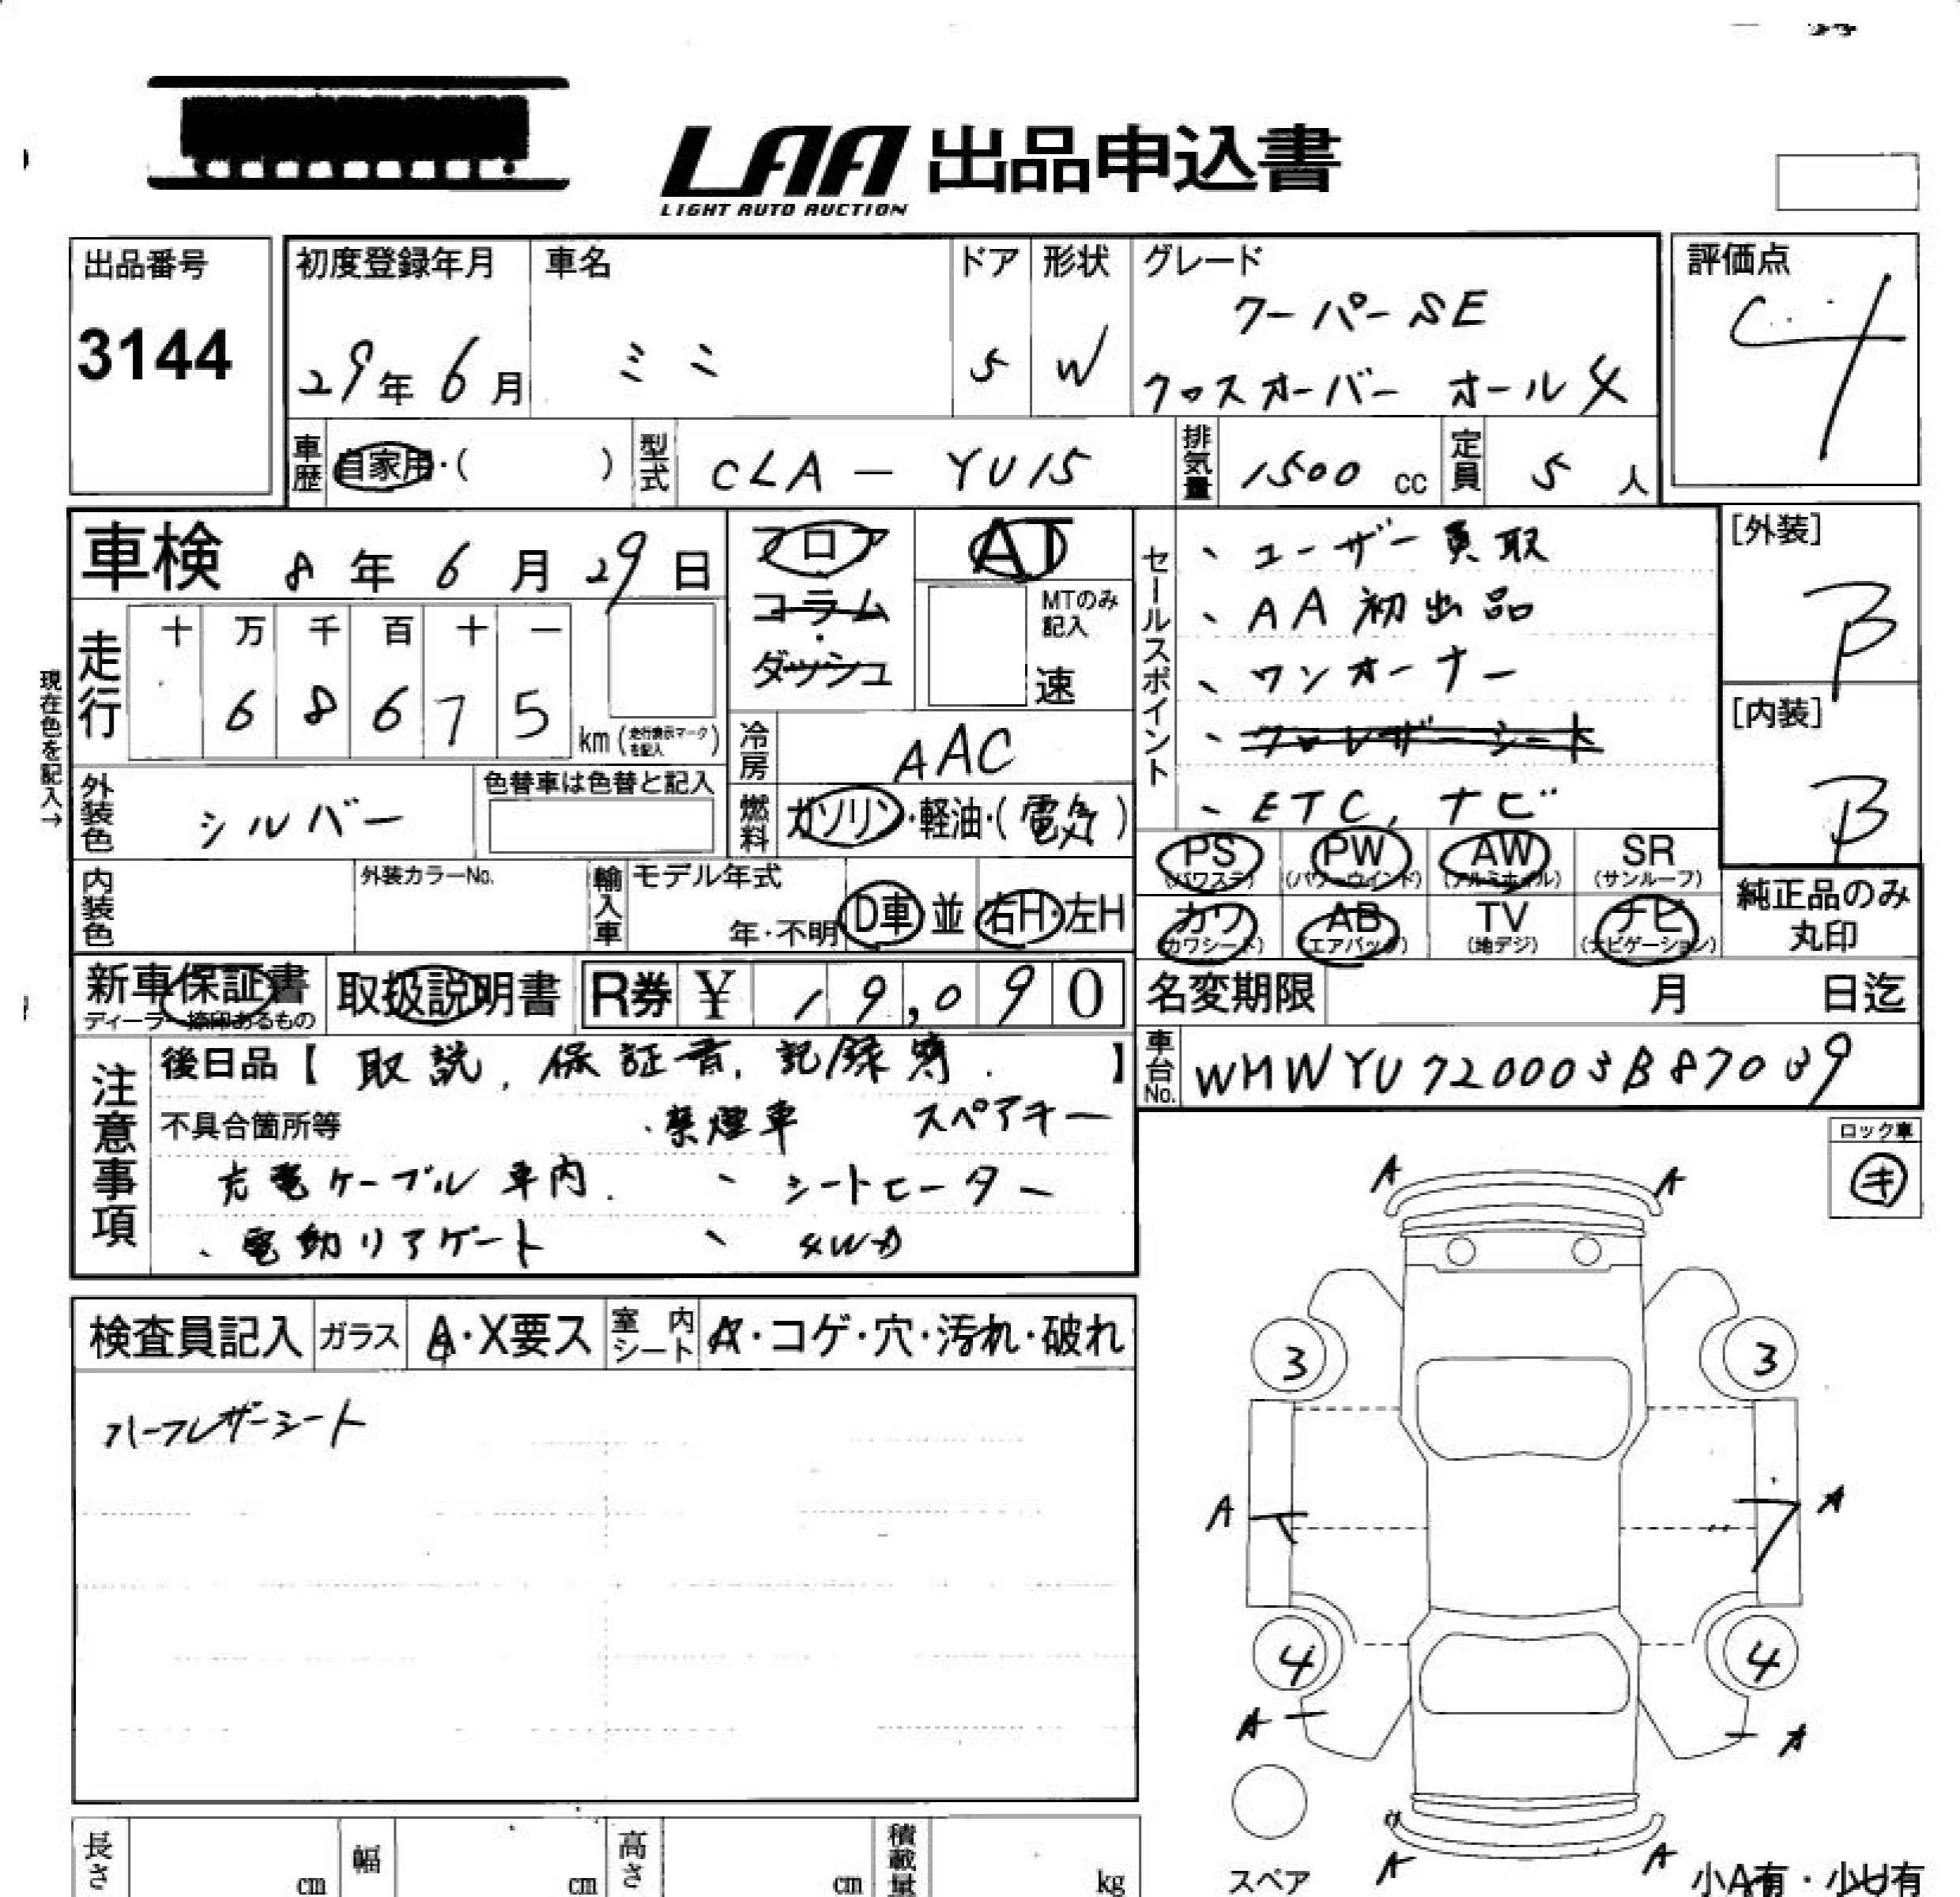 LAA 出品申込書
LIGHT AUTO AUCTION
出品番号
3144
初度登録年月
29年6月
車名
ミニ
ドア
5
形状
W
グレード
クーパーSE
クロスオーバー オール4
評価点
4
車歴
自家用・( )
型式
CLA-YU15
排気量
1500 cc
定員
5 人
車検 8年6月29日
走行
十 万 千 百 十 一
6 8 6 7 5
km(走行表示マークを記入)
現在色を記入→
外装色
シルバー
色替車は色替と記入
内装色
外装カラーNo.
フロア
コラム
・
ダッシュ
AT
MTのみ記入
速
冷房
AAC
燃料
ガソリン・軽油・(電気)
輸入車
モデル年式
年・不明
D車 並 右H・左H
セールスポイント
、ユーザー買取
、AA初出品
、ワンオーナー
、クロレザーシート
、ETC, ナビ
[外装]
B
[内装]
B
PS (パワステ)
PW (パワーウインド)
AW (アルミホイル)
SR (サンルーフ)
カワ (カワシート)
AB (エアバック)
TV (地デジ)
ナビ (ナビゲーション)
純正品のみ
丸印
新車保証書
ディーラー捺印あるもの
取扱説明書
R券 ¥ 19,090
名変期限 月 日迄
車台No.
注意事項
後日品【取説, 保証書, 記録簿.】
不具合箇所等 ・禁煙車 スペアキー
充電ケーブル車内. 、シートヒーター
、電動リアゲート 、4WD
ロック車
キ
検査員記入
ガラス
A・X要ス
室内シート
A・コゲ・穴・汚れ・破れ
ハーフレザーシート
A A
3 3
A A
4 4
A A
A A
スペア
小A有・小U有
長さ cm
幅 cm
高さ cm
積載量 kg